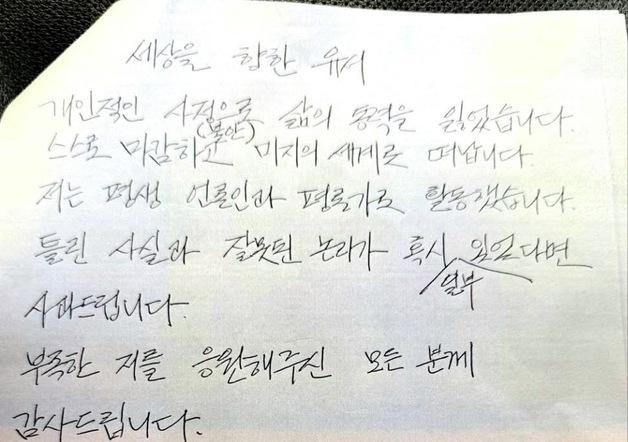 세상을 향한 유서
개인적인 사정으로 삶의 동력을 잃었습니다.
스스로 마감하고 (불안) 미지의 세계로 떠납니다.
저는 평생 언론인과 평론가로 활동했습니다.
틀린 사실과 잘못된 논리가 혹시 일부 있었다면
사과드립니다.
부족한 저를 응원해주신 모든 분께
감사드립니다.